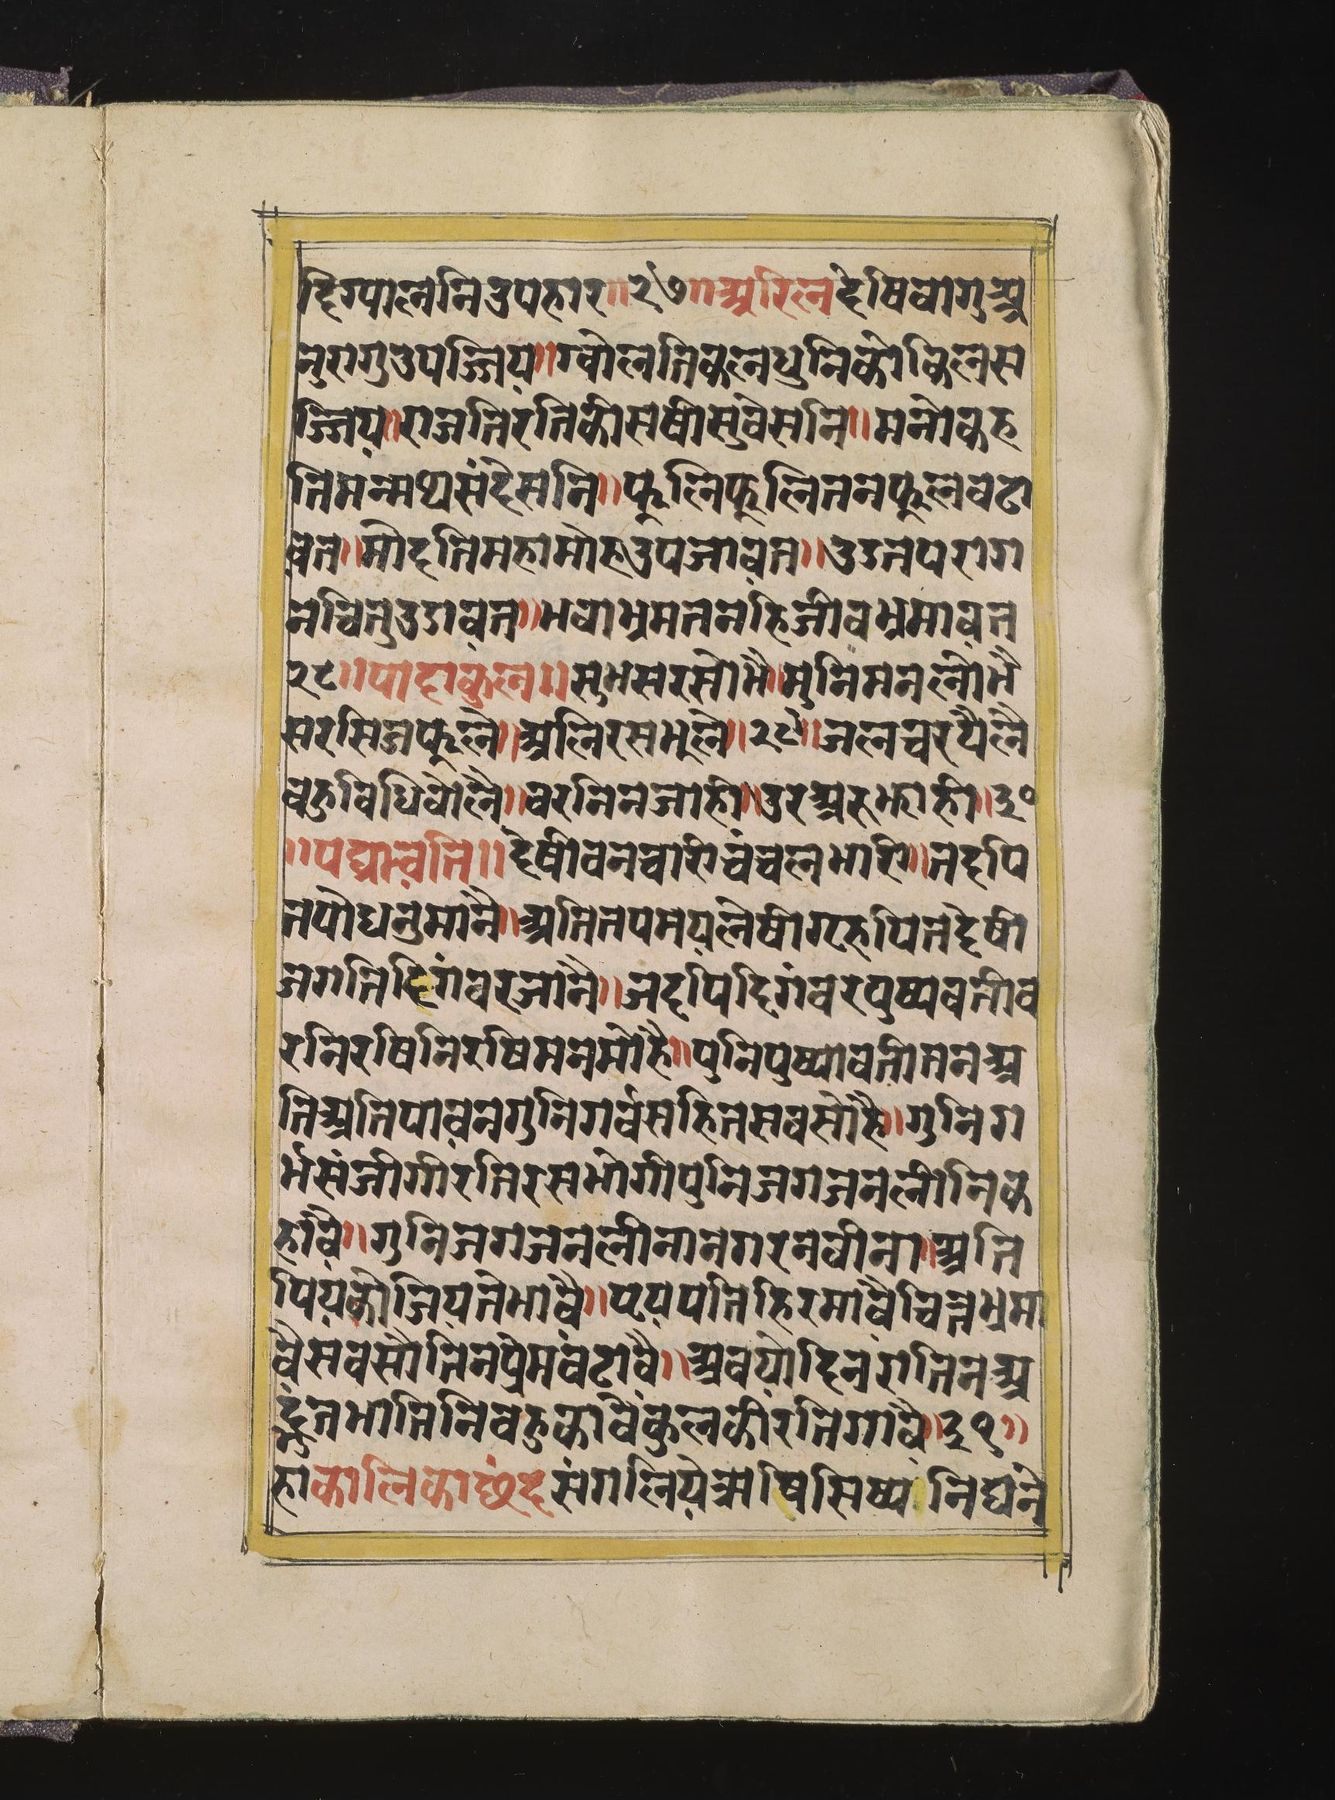 दिग्पालनिउपहार॥२७॥अरिल॥देषिबागुअ
नुरागुउपज्जिय॥बोलतिकलधुनिकोकिलस
ज्जिय॥राजतिरतिकीसषीसुबेसनि॥मनोकह
तिमंन्मथसंदेसनि॥फूलिफूलितनफूलबढा
वत॥मोदतिमहामोहउपजावत॥उडतपराग
नचितुउडावत॥भवाभ्रमतनहिजीवभ्रमावत
२८॥पादाकुल॥सुभसरसोभै॥मुनिमनलोभै
सरसिजफूलै॥अलिरसभूले॥२९॥जलचरपैलै
बहुबिधिबोलै॥बरनिनजाही॥उरअरुझाही॥३०
॥पद्मावति॥देषीबनबारीचंचलभारी॥तदपि
तपोधनुमानै॥अतितपमयलेषीग्रहपितदेषी
जगतदिगंबरजानै॥जदपिदिगंबरपुष्पवतीब
रनिरषिनिरषिमनमोहै॥पुनिपुष्पावतीतनअ
तिअतिपावनगुनिगर्बसहितसबसोहै॥गुनिग
र्भसंजोगीरतिरसभोगीपुनिजगजनलीनिक
हावै॥गुनिजगजनलीनानगरनवीना॥अति
पियकोजियतेभावै॥पयपतिहिरमावैचित्तभ्रमा
वैसबसौतिनप्रेमबंटावै॥अबयोदिनरातिनअ
द्भुतभातिनिबहुकाबैकुलकीरतिगावै॥३१॥
हाकालिकाछंदसंगलियेऋषिसिष्यनिघने